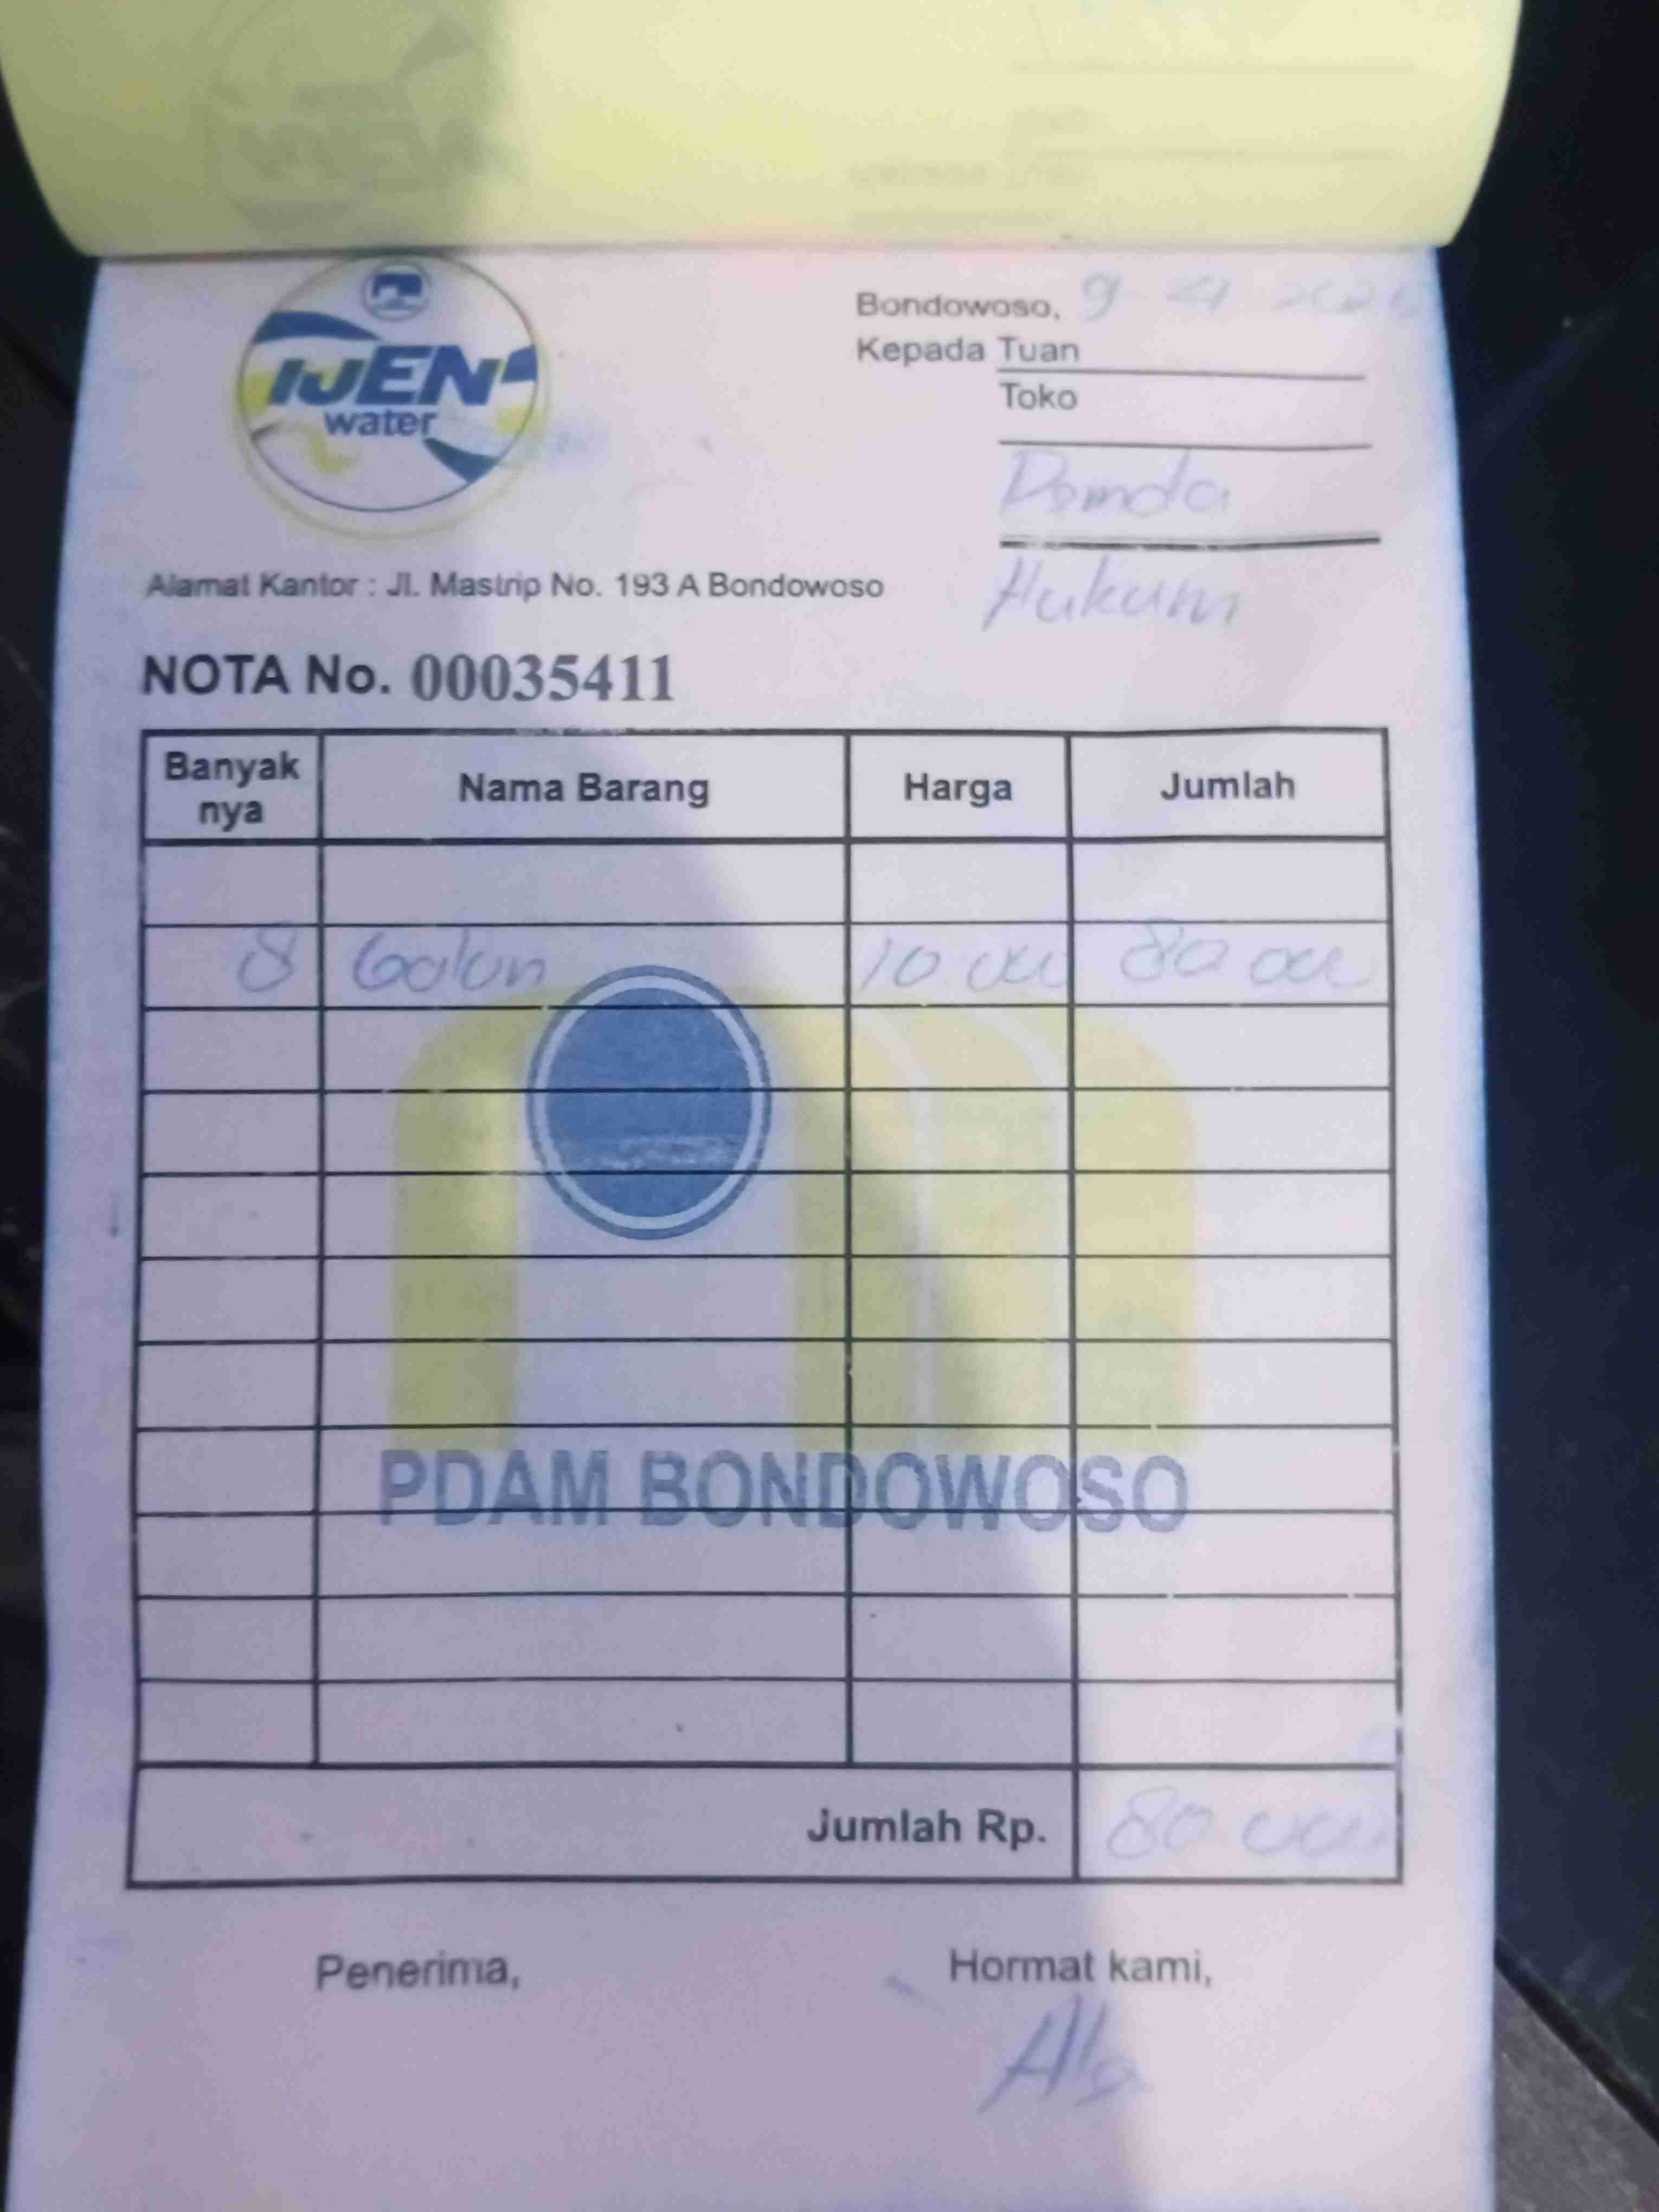 IJEN
water
Bondowoso, 9 - 4
Kepada Tuan
Toko
Pemda
Hukum
Alamat Kantor : Jl. Mastrip No. 193 A Bondowoso
NOTA No. 00035411
Banyak nya Nama Barang Harga Jumlah
8 Galon 10 000 80 000
PDAM BONDOWOSO
Jumlah Rp. 80 000
Penerima, Hormat kami,